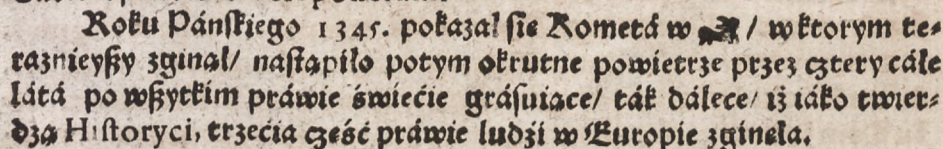 Roku Páńſkiego 1345. pokazał ſie Kometá w / w ktorym te⸗
raznieyßy zginął/ naſtąpiło potym okrutne powietrze przez cztery cáłe
látá po wßytkim práwie świećie gráſuiące/ ták dálece/ iż iáko twier⸗
dzą Hiſtoryci, trzećia część práwie ludźi w Europie zginęła.